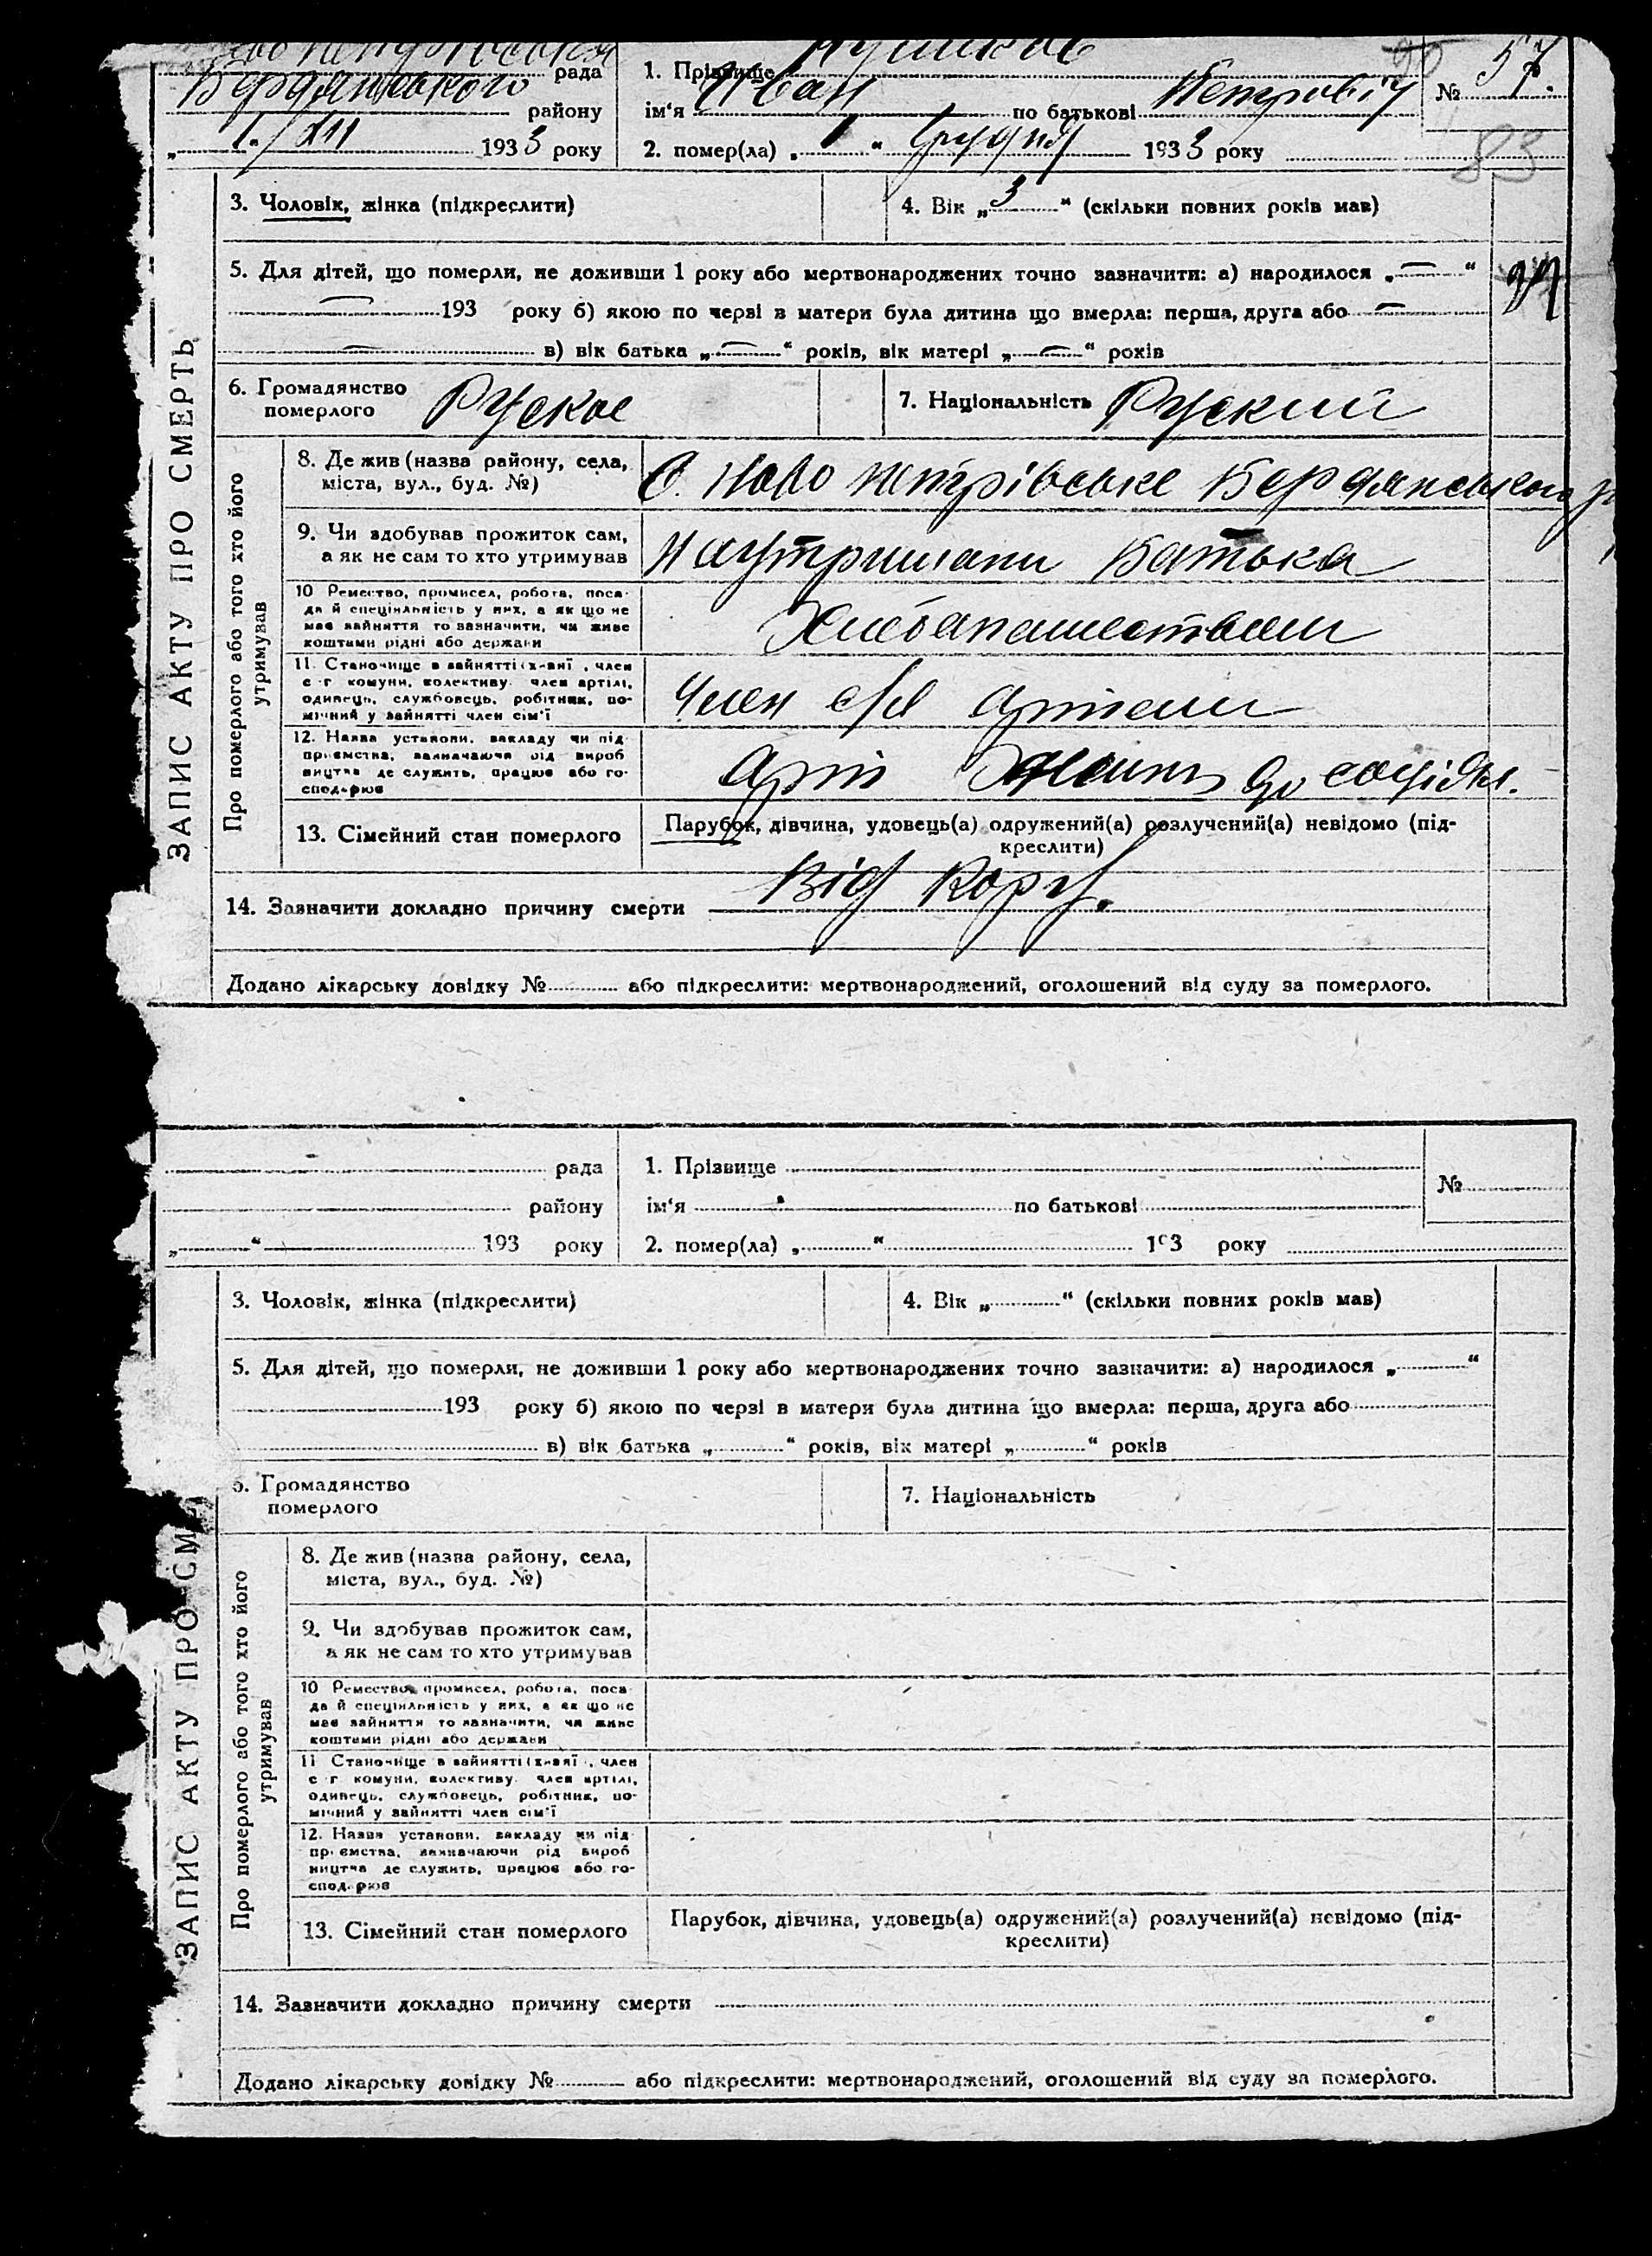 Бердянського рада 1. Прізвище № 57.
району ім'я Иван по батькові Петровіч
„ 1./XII 1933 року 2. помер(ла) „ 1 “ Грудня 1933 року 83
3. Чоловік, жінка (підкреслити) 4. Вік „ 3 “ (скільки повних років мав)
5. Для дітей, що померли, не доживши 1 року або мертвонароджених точно зазначити: а) народилося „ — “
— 193 року б) якою по черзі в матери була дитина що вмерла: перша, друга або —
— в) вік батька „ — “ років, вік матері „ — “ рохів
6. Громадянство
померлого Руское 7. Національність Руский
ЗАПИС АКТУ ПРО СМЕРТЬ
Про померлого або того хто його
утримував
8. Де жив (назва району, села,
міста, вул., буд. №) С. Ново петрівське Бердянського
9. Чи здобував прожиток сам,
а як не сам то хто утримував Наутримани Батька
10 Ремество, промисел, робота, поса-
да й спеціяльність у них, а як що не
має зайняття то зазначити, чи живе
коштами рідні або держави
11. Становище в зайнятті (х-вяї, член
с-г комуни, колективу. член артілі,
одинець, службовець, робітник, по-
мічний у зайнятті член сім'ї Член с/г Артели
12. Назва установи, закладу чи під-
приємства, зазначаючи рід вироб
ництва де служить, працює або го-
сподарює Арт
13. Сімейний стан померлого Парубок, дівчина, удовець(а) одружений(а) розлучений(а) невідомо (під-
креслити)
14. Зазначити докладно причину смерти Від Кору.
Додано лікарську довідку № або підкреслити: мертвонароджений, оголошений від суду за померлого.
рада 1. Прізвище №
району ім'я по батькові
„ “ 193 року 2. помер(ла) „ “ 193 року
3. Чоловік, жінка (підкреслити) 4. Вік „ “ (скільки повних років мав)
5. Для дітей, що померли, не доживши 1 року або мертвонароджених точно зазначити: а) народилося „ “
193 року б) якою по черзі в матери була дитина що вмерла: перша, друга або
в) вік батька „ “ років, вік матері „ “ років
6. Громадянство
померлого 7. Національність
ЗАПИС АКТУ ПРО СМ
Про померлого або того хто його
утримував
8. Де жив (назва району, села,
міста, вул., буд. №)
9. Чи здобував прожиток сам,
а як не сам то хто утримував
10 Ремество, промисел, робота, поса-
да й спеціяльність у них, а як що не
має зайняття то зазначити, чи живе
коштами рідні або держави
11 Становище в зайнятті (х-вяї, член
с-г комуни, колективу. член артілі,
одинець, службовець, робітник, по-
мічний у зайнятті член сім'ї
12. Назва установи, закладу чи під-
приємства, зазначаючи рід вироб
ництва де служить, працює або го-
сподарює
13. Сімейний стан померлого Парубок, дівчина, удовець(а) одружений(а) розлучений(а) невідомо (під-
креслити)
14. Зазначити докладно причину смерти
Додано лікарську довідку № або підкреслити: мертвонароджений, оголошений від суду за померлого.